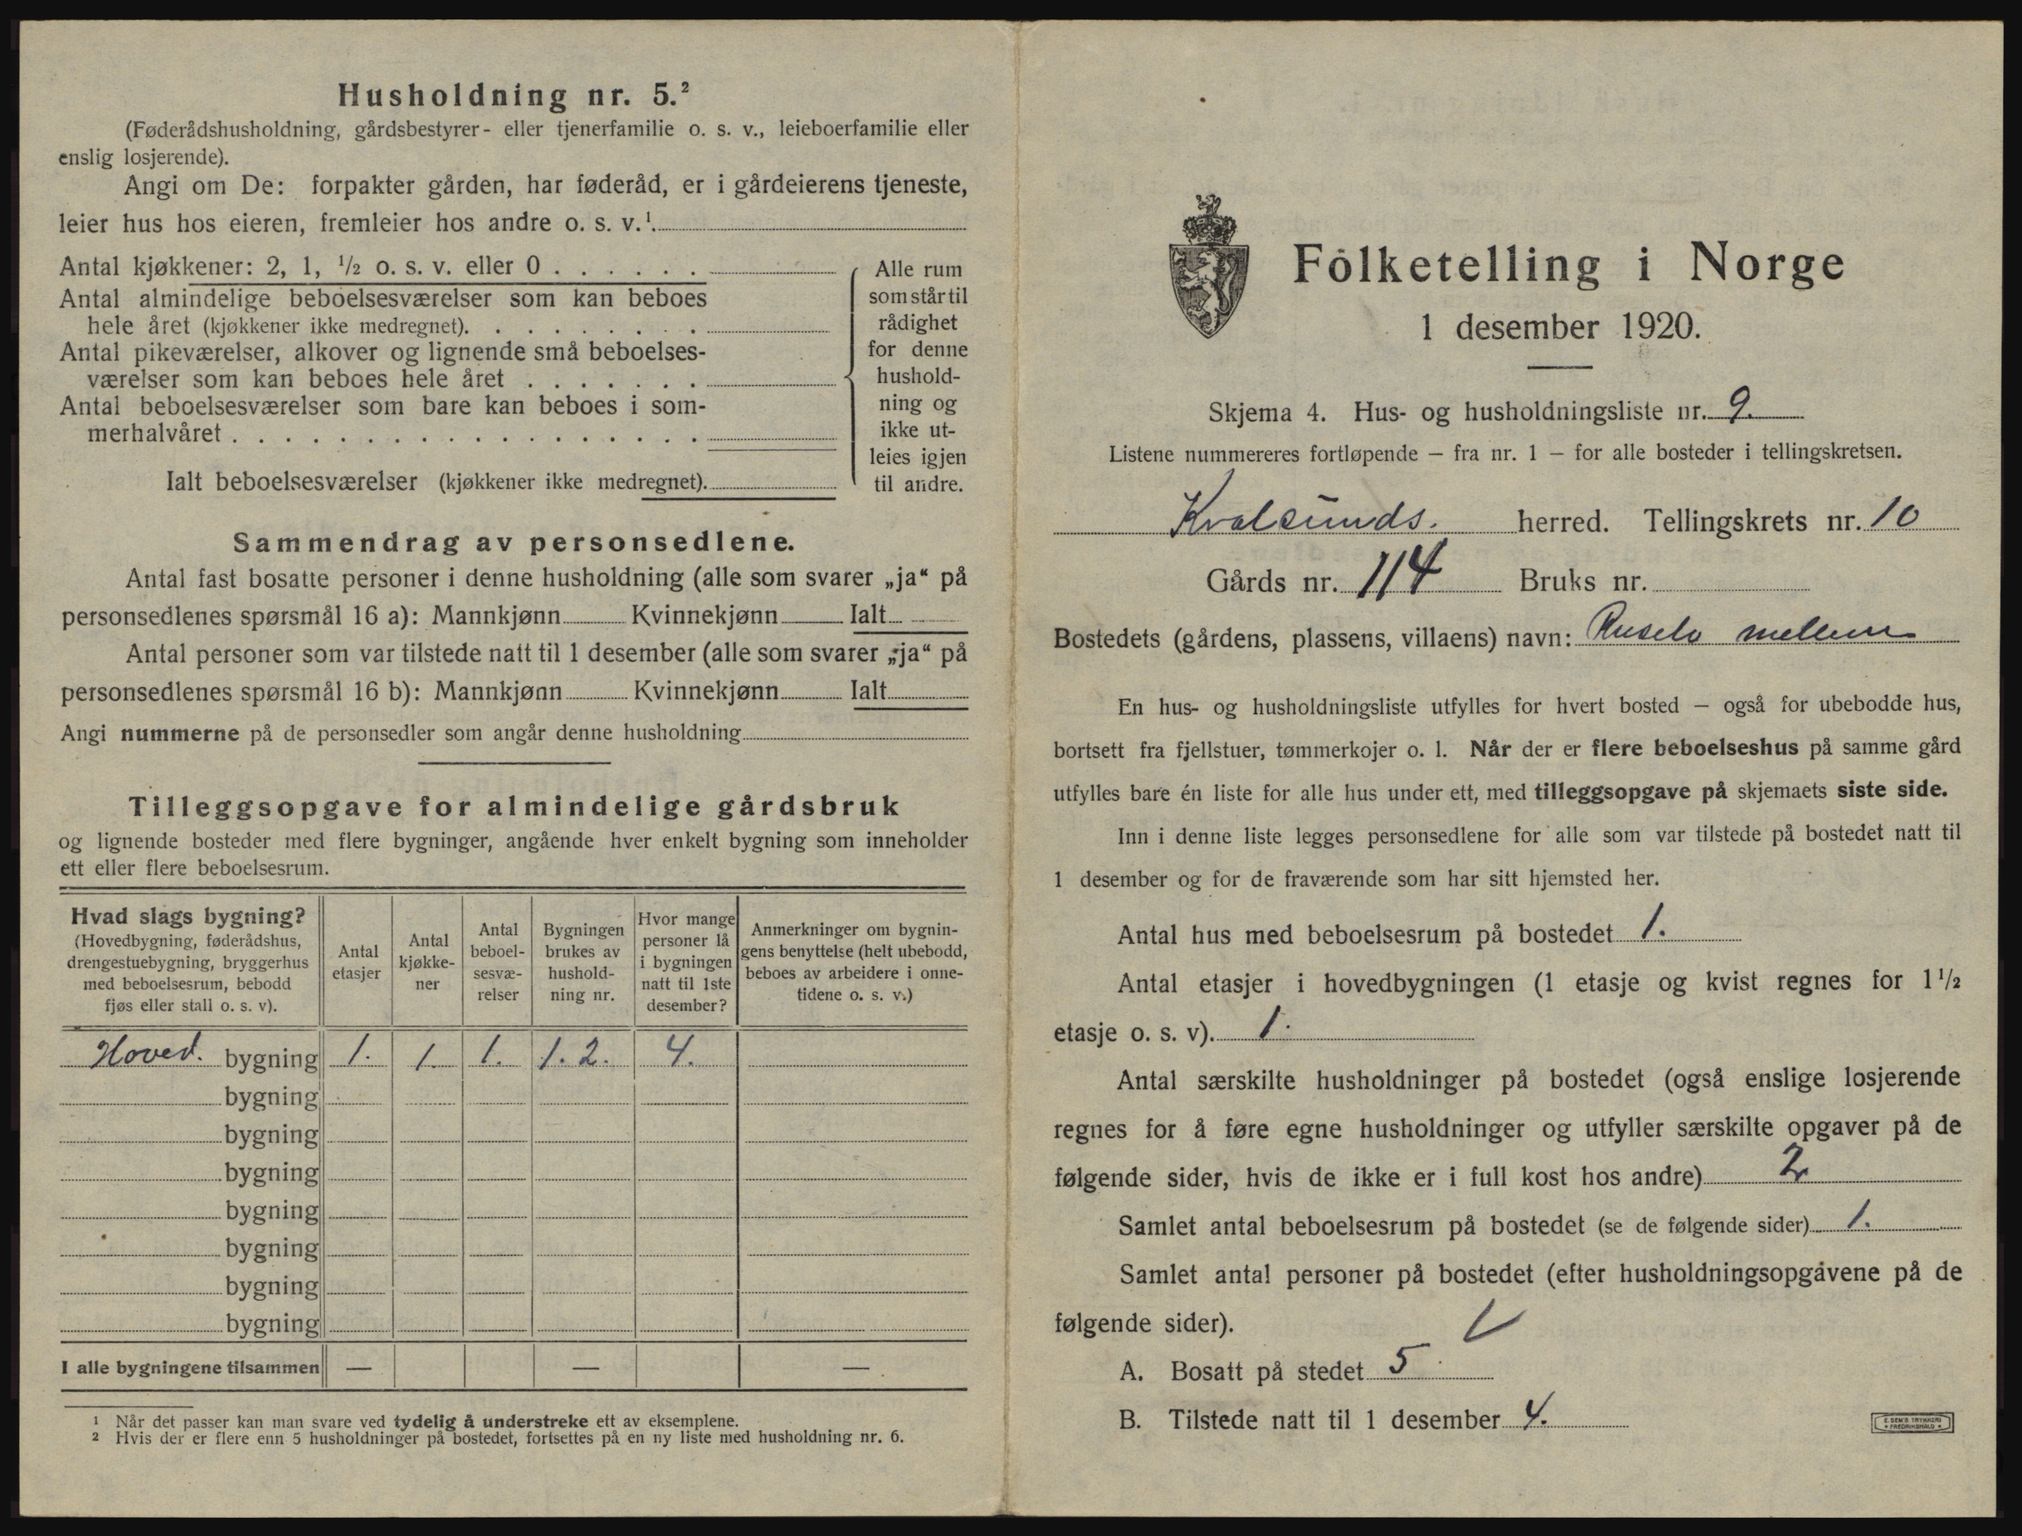 Husholdning nr. 5.²
(Føderådshusholdning, gårdsbestyrer- eller tjenerfamilie o. s. v., leieboerfamilie eller
enslig losjerende).
Angi om De: forpakter gården, har føderåd, er i gårdeierens tjeneste,
leier hus hos eieren, fremleier hos andre o. s. v.¹
Antal kjøkkener: 2, 1, ½ o. s. v. eller 0
Antal almindelige beboelsesværelser som kan beboes
hele året (kjøkkener ikke medregnet).
Antal pikeværelser, alkover og lignende små beboelses-
værelser som kan beboes hele året
Antal beboelsesværelser som bare kan beboes i som-
merhalvåret
Ialt beboelsesværelser (kjøkkener ikke medregnet).
Alle rum
som står til
rådighet
for denne
hushold-
ning og
ikke ut-
leies igjen
til andre.
Sammendrag av personsedlene.
Antal fast bosatte personer i denne husholdning (alle som svarer „ja“ på
personsedlenes spørsmål 16 a): Mannkjønn Kvinnekjønn Ialt
Antal personer som var tilstede natt til 1 desember (alle som svarer „ja“ på
personsedlenes spørsmål 16 b): Mannkjønn Kvinnekjønn Ialt
Angi nummerne på de personsedler som angår denne husholdning
Tilleggsopgave for almindelige gårdsbruk
og lignende bosteder med flere bygninger, angående hver enkelt bygning som inneholder
ett eller flere beboelsesrum.
Hvad slags bygning?
(Hovedbygning, føderådshus,
drengestuebygning, bryggerhus
med beboelsesrum, bebodd
fjøs eller stall o. s. v).
Antal
etasjer
Antal
kjøkke-
ner
Antal
beboel-
sesvæ-
relser
Bygningen
brukes av
hushold-
ning nr.
Hvor mange
personer lå
i bygningen
natt til 1ste
desember?
Anmerkninger om bygnin-
gens benyttelse (helt ubebodd,
beboes av arbeidere i onne-
tidene o. s. v.)
Hoved. bygning 1. 1. 1. 1. 2. 4.
bygning
bygning
bygning
bygning
bygning
bygning
bygning
I alle bygningene tilsammen — — —
¹ Når det passer kan man svare ved tydelig å understreke ett av eksemplene.
² Hvis der er flere enn 5 husholdninger på bostedet, fortsettes på en ny liste med husholdning nr. 6.
Folketelling i Norge
1 desember 1920.
Skjema 4. Hus- og husholdningsliste nr. 9.
Listene nummereres fortløpende — fra nr. 1 — for alle bosteder i tellingskretsen.
Kvalsunds. herred. Tellingskrets nr. 10
Gårds nr. 114 Bruks nr.
Bostedets (gårdens, plassens, villaens) navn: Ruselv mellem
En hus- og husholdningsliste utfylles for hvert bosted — også for ubebodde hus,
bortsett fra fjellstuer, tømmerkojer o. l. Når der er flere beboelseshus på samme gård
utfylles bare én liste for alle hus under ett, med tilleggsopgave på skjemaets siste side.
Inn i denne liste legges personsedlene for alle som var tilstede på bostedet natt til
1 desember og for de fraværende som har sitt hjemsted her.
Antal hus med beboelsesrum på bostedet 1.
Antal etasjer i hovedbygningen (1 etasje og kvist regnes for 1½
etasje o. s. v). 1.
Antal særskilte husholdninger på bostedet (også enslige losjerende
regnes for å føre egne husholdninger og utfyller særskilte opgaver på de
følgende sider, hvis de ikke er i full kost hos andre) 2
Samlet antal beboelsesrum på bostedet (se de følgende sider) 1.
Samlet antal personer på bostedet (efter husholdningsopgavene på de
følgende sider).
A. Bosatt på stedet 5
B. Tilstede natt til 1 desember 4.
E. SEM'S TRYKKERI
FREDRIKSHALD